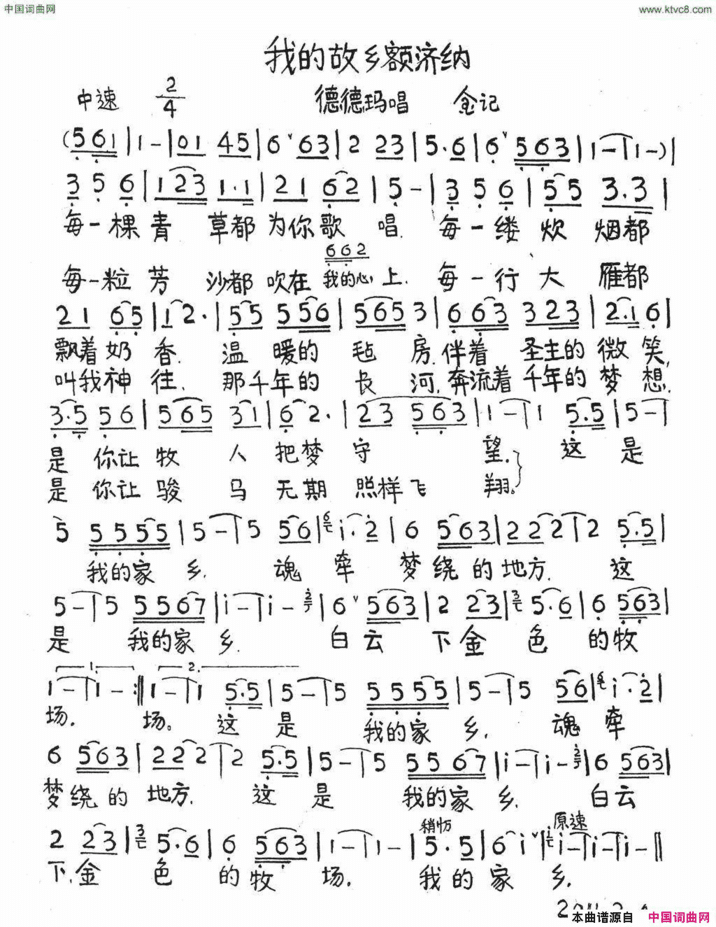 中国词曲网
www.ktvc8.com
我的故乡额济纳
中速 2/4 德德玛唱 金记
(5 6 1 | 1 - | 0 1 4 5 | 6 ∨ 6 3 | 2 2 3 | 5 . 6 | 6 ∨ 5 6 3 | 1 - | 1 - ) |
3 5 6 | 1 2 3 1 . 1 | 2 1 6 2 | 5 - | 3 5 6 | 5 5 3 . 3 |
每一棵青 草都为你歌 唱. 每一缕 炊 烟都
6 6 2
每一粒芳 沙都吹在 我的心上. 每一行大 雁都
2 1 6 5 | 1 2 . | 5 5 5 5 6 | 5 6 5 3 | 6 6 3 3 2 3 | 2 . 1 6 |
飘着奶香. 温 暖的 毡 房, 伴着 圣主的微笑,
叫我神往. 那千年的 长 河, 奔流着千年的梦想,
3 . 5 5 6 | 5 6 5 3 1 | 6 2 . | 2 3 5 6 3 | 1 - | 1 5 . 5 | 5 -
是 你让牧 人 把梦 守 望. 这是
是 你让骏 马 无期 照样飞 翔.
5 5 5 5 5 | 5 - | 5 5 6 | i . 2 | 6 5 6 3 | 2 2 2 2 | 2 5 . 5 |
我的家 乡. 魂 牵 梦绕的地方. 这
5 - | 5 5 5 6 7 | i - | i - | 6 ∨ 5 6 3 | 2 2 3 | 5 . 6 | 6 5 6 3 |
是 我的家 乡. 白云 下金 色 的牧
1. 2.
1 - | 1 - :‖ 1 - | 1 5 . 5 | 5 - | 5 5 5 5 5 | 5 - | 5 5 6 | i . 2 |
场. 场。 这是 我的家 乡. 魂 牵
6 5 6 3 | 2 2 2 2 | 2 5 . 5 | 5 - | 5 5 5 6 7 | i - | i - | 6 5 6 3 |
梦绕的 地方. 这 是 我的家 乡. 白云
稍慢 原速
2 2 3 | 5 . 6 | 6 5 6 3 | 1 - | 1 - | 5 . 5 | 6 i ∨ | i - | i - | i - ‖
下.金 色 的牧 场. 我的家 乡.
本曲谱源自 中国词曲网